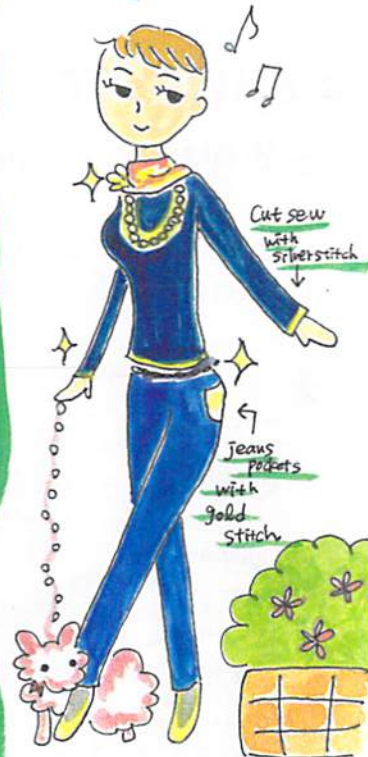 Cut sew
with
silver stitch
jeans
pockets
with
gold
stitch